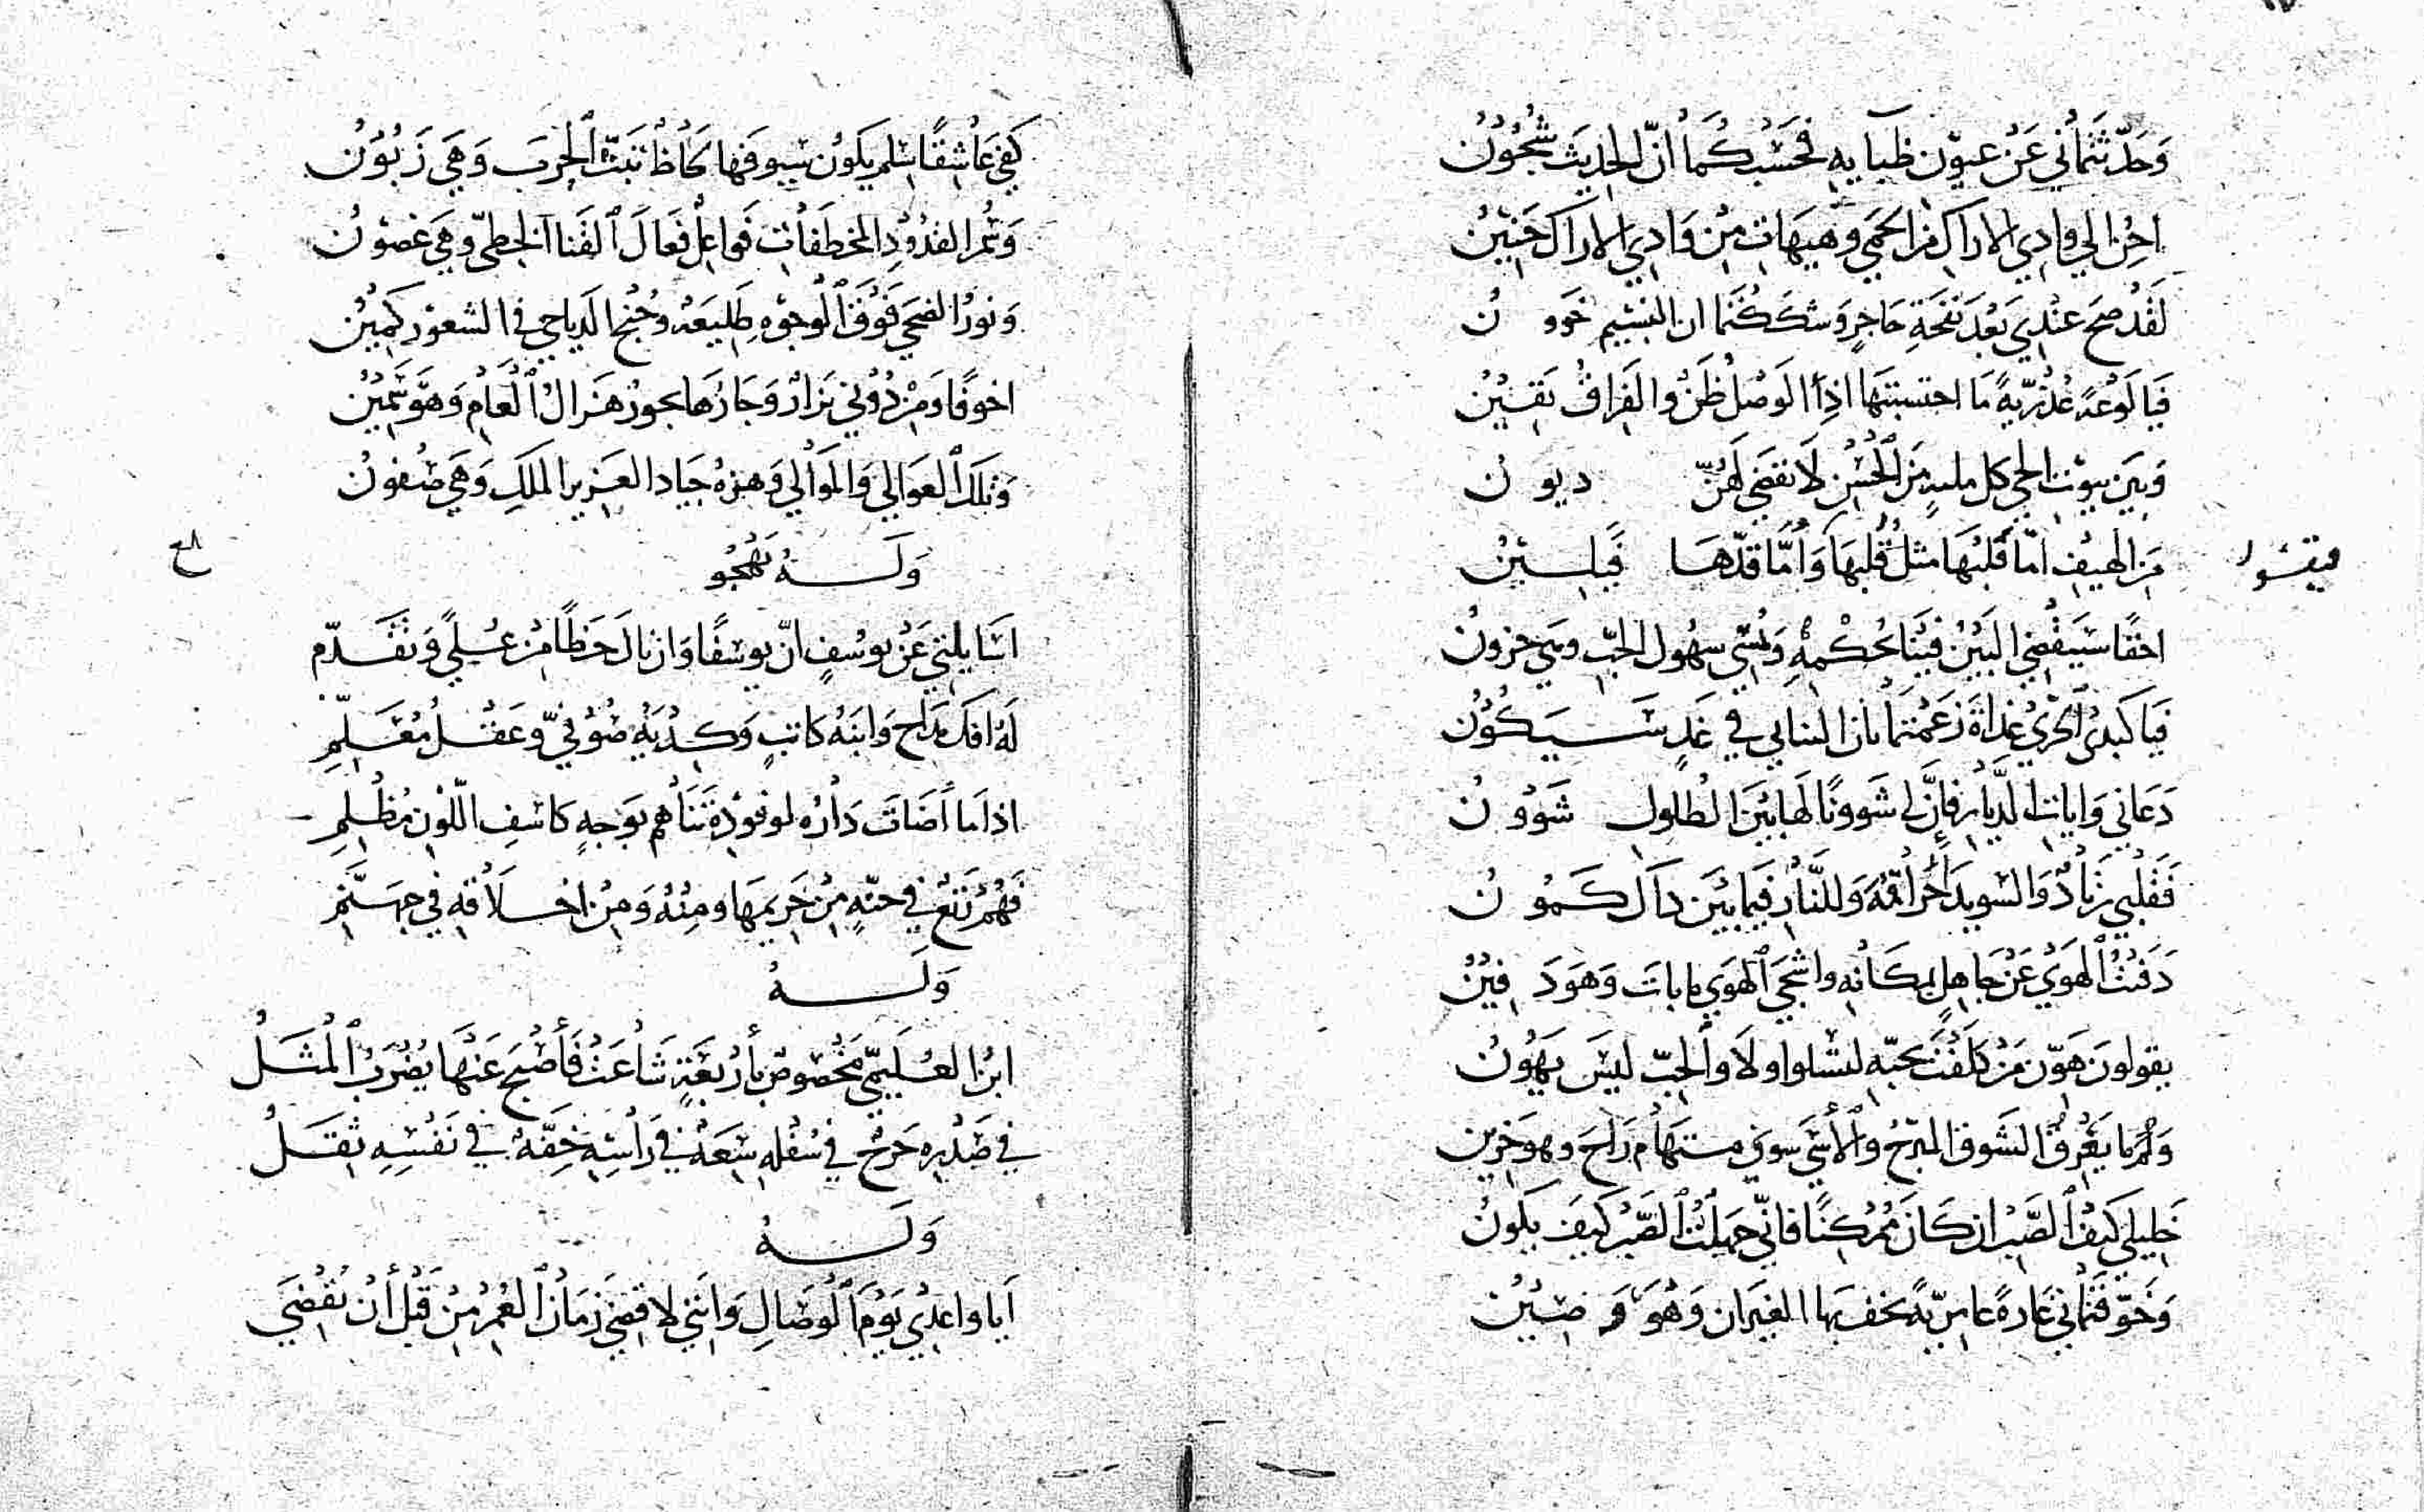 وَحَدَّثتماني عَنْ عيون ظبايهِ فحَسْبُكُمَا أنّ الحديثَ شُجُوُنُ
احِنُ الي وادِي الاراكِ من الحمي وهيهَاتِ مِنْ وَادِي الاراكَ حَنِينُ
لَقدْ صح عندِي بَعْدَ نفحَةِ حَاجرٍ وشككتُمَا ان النسيم خَوونُ
فيَا لَوْعةً عُذْرِيّةً مَا احتسبتهَا اذِا الوَصْلُ ظَنٌ والفِراقُ يَقينُ
وَبَين بيوُت الحي كل ملية مِنَ الحُسْنِ لَا تقضَي لَهُنّ ديونُ
مِنَ الهيفِ امّا قَلبُهَا مثلُ قُلبهَا وَأمّا قدّهَا فيَلِينُ
فيقسوا
احقًا سَيَقْضِي البَيْنُ فينَا بحُكْمهِ وَتُمْسِي سهُول الحبّ وهي حزونُ
فيَا كَبدي الحَرّيُ غداةَ زَعَمْتمَا بان التنايي في غَدٍ سَيَكُوُن
دَعَاني وَايات الدّيارِ فإنَّ لي شوونًا لَها بَيْنَ الطلولِ شَوُونُ
فَقلْبي زنادٌ وَالسويدَا حُراقُهُ وَللنَّارِ فيمَا بَيْنَ ذَاكَ كَموُنُ
دَفَنْتُ الهَوَيُ عَنْ جَاهِلٍ بمكانهِ واشْجَي الهَوَي ما باتَ وَهوَ دَفِينُ
يقولونَ هَوّن مَنْ كلَفْتَ بحبّهِ لتسلوا ولَا والحبّ ليسَ يهوُنُ
وَلَمْ ما يَعْرِفُ الشَوق المبرّحُ والأسَي سوي مستهَام رَاحَ وهو حَزين
خليلي كَيْفَ الصَبْر ان كَانَ مُمْكِنًا فانّي جَهلْتُ الصَّبْرَ كَيفَ يكونُ
وَخَوّفتمَاني غَارةً عامِرّيةً يخف بها الغيرَان وَهُوَ رَصِينُ
كَفي عَاشِقًا سلم يكون سيوفَها لحَاظٌ تبَثّ الحرَبَ وَهيَ زَبُوُنُ
وَسُمر القدُوُدِ المخطفَات فَواعِلٌ فعَالَ القَنا الخطّي وهيَ غصونُ
وَنورُ الضحي فَوْقَ الوجوْهِ طَلِيعَةٌ وجُنْحُ الدياجي في الشعور كَمِيُن
اخوفًا وَمِنْ دُوُني نزارٌ وَجَارُهَا يجوز هَزالُ العَامِ وَهوَ سَمِينُ
وَتلكَ العوَالي وَالموَالي وَهزهُ جيَاد العَزيز الملكِ وَهيَ صُفونُ
وَلَهُ يَهْجُو
اسَايلتي عَنْ يوسُفٍ انّ يوسُفًا وَان نالَ حَظًا مِنْ عُليً وَتقَدّم
لَهُ افكُ مدّاحٍ وَابنَهُ كاتبٍ وَكِدْيَةِ صُوْفيّ وَعَقلُ مُعَلِّمِ
اذا مَا أضَاتَ دَارُه لوفوُدِهِ تَنَاهُم بوَجهٍ كاسِفِ اللّوْنِ مُظْلِمِ
فَهُمْ رُتَّعٌ في جنّةٍ مِنْ حَريمهَا ومِنْهُ وَمِنْ اخلَاقهِ في جهَنّمِ
وَلَهُ
ابنُ العُلَيمّي مَخْصُوصٌ بأرْبعَةٍ شَاعَتْ فَأصْبحَ عَنْهَا يُضْرَبُ المثَلُ
في صَدْره حَرَجٌ في سُفْلهِ سِعَةٌ في رَأسِهِ خِفّةٌ في نَفْسِهِ ثِقَلُ
وَلَهُ
أيَا واعدِي يَوْمَ الوصَالِ وَانني لاقضِي زمَانَ العُمْرِ مِنْ قَبْل أنْ تُقْضَي